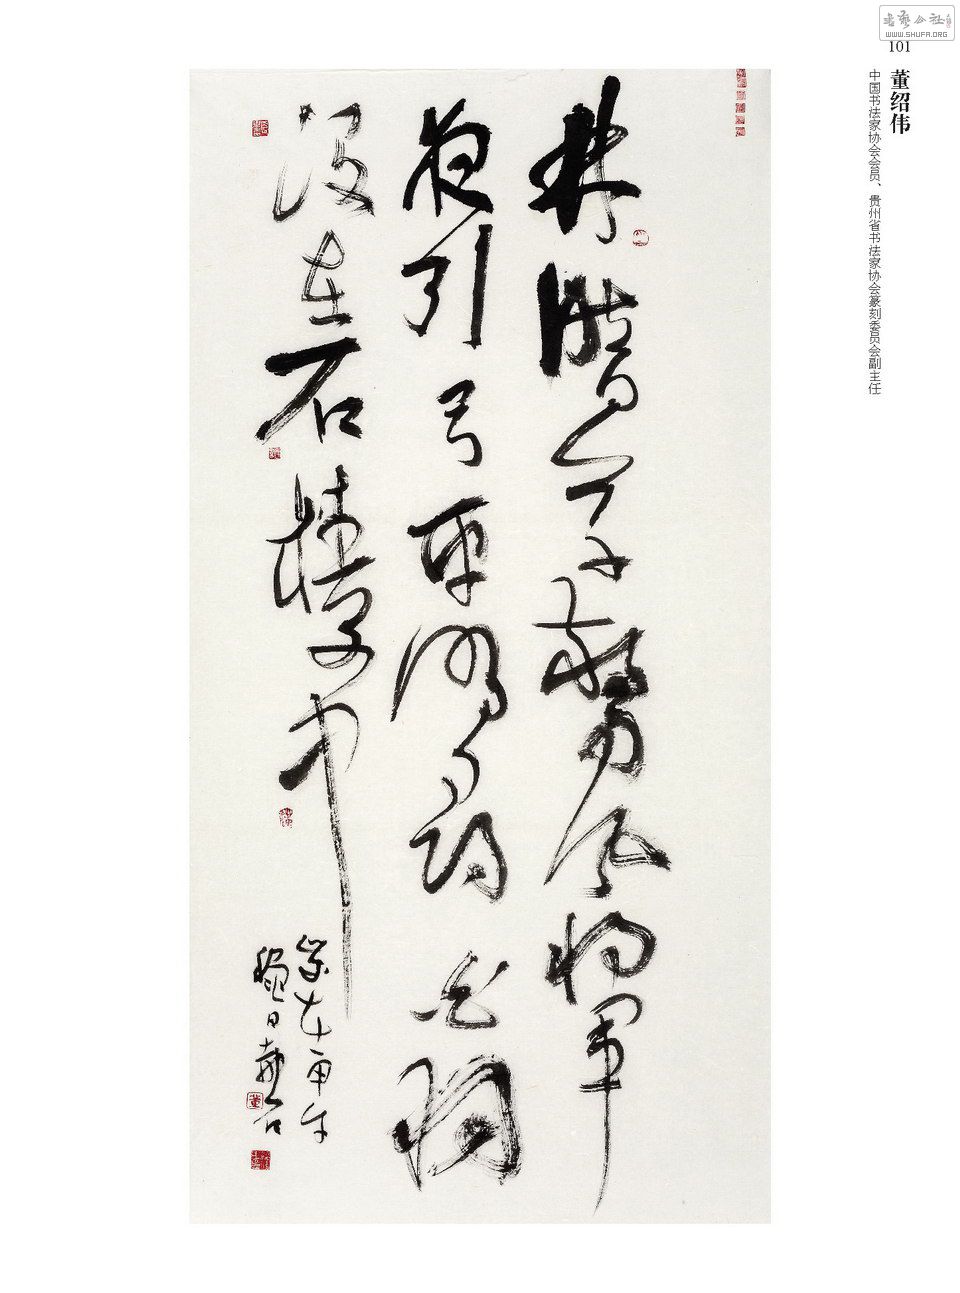 书艺公社
WWW.SHUFA.ORG
101
董绍伟
中国书法家协会会员、贵州省书法家协会篆刻委员会副主任
林暗草惊风将军
夜引弓平明寻白羽
没在石棱中